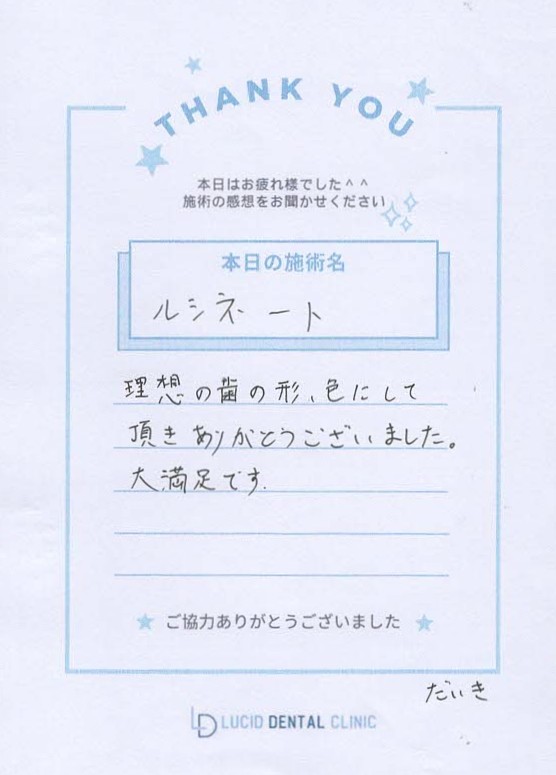 THANK YOU
本日はお疲れ様でした^ ^
施術の感想をお聞かせください
本日の施術名
ルシネート
理想の歯の形、色にして
頂きありがとうございました。
大満足です.
ご協力ありがとうございました
だいき
LD LUCID DENTAL CLINIC